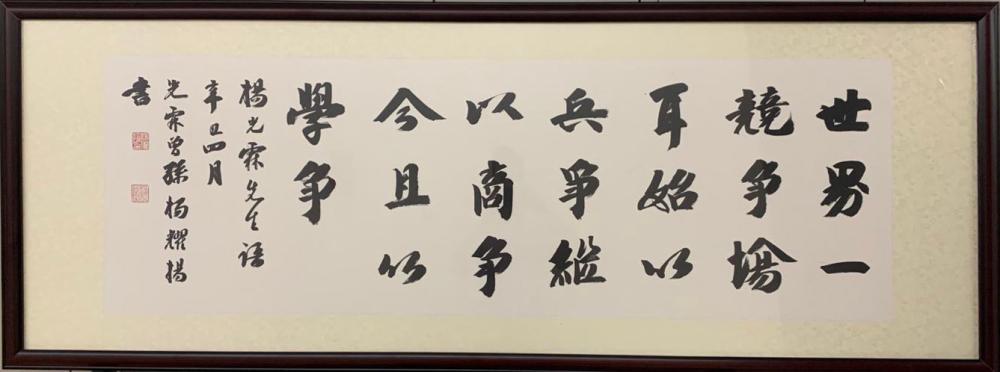 世界一
競争場
耳始以
兵爭縱
以商争
今且以
學争
楊光霖先生語
辛丑四月
光霖曾孫楊耀揚
書